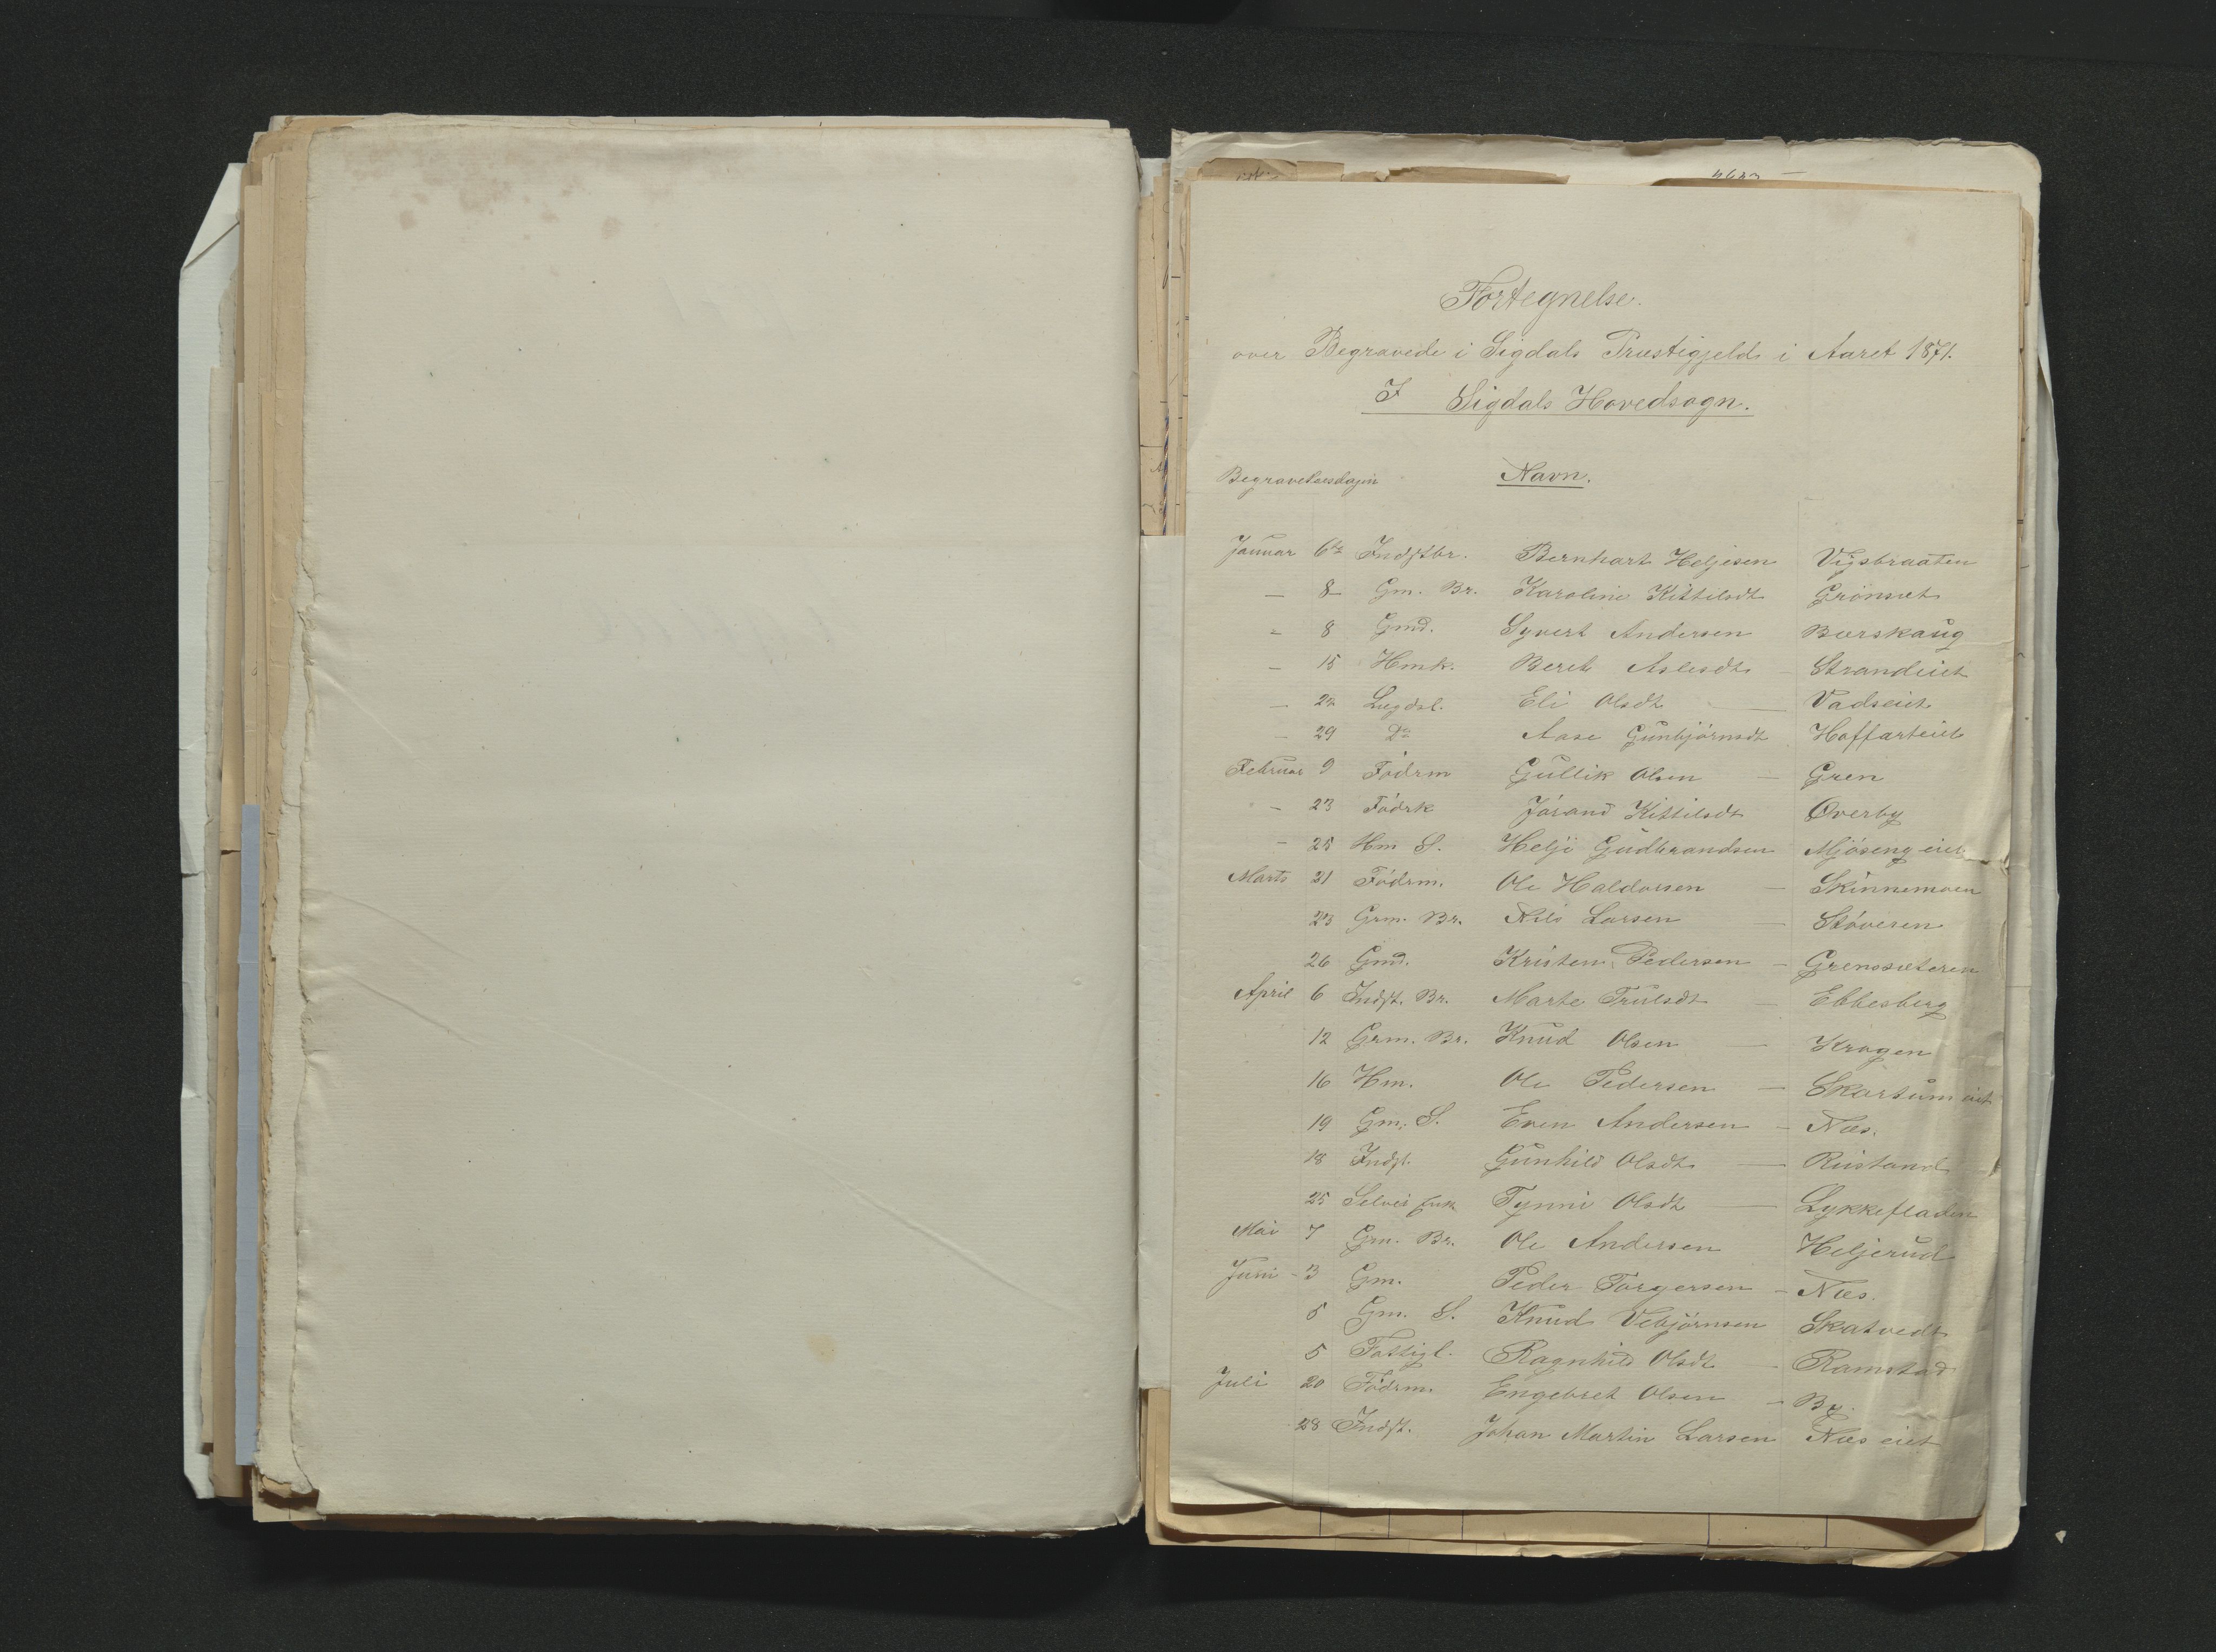 Fortegnelse.
over Begravede i Sigdals Præstigjeld i Aaret 1871.
I Sigdals Hovedsogn.
Begravelsesdagen Navn.
Januar 6te Indstbr. Bernhart Heljesen Vigsbraaten
— 8 Gm. Br. Karoline Kittilsdt Grönsæt
— 8 Gmd. Syvert Andersen Borskaug
— 15 Hmk. Berit Aslesdt — Strandeiet
— 22 Lægdsl. Eli Olsdt — Vadseiet
— 29 Do Aase Gunbjörnsdt Hoffarteiet
Februar 9 Födrm Gullik Olsen — Gren
— 23 Födrk Jörand Kittilsdt Överby
— 25 Hm S. Helje Gudbrandsen Mjöseng eiet
Marts 21 Födrm. Ole Haldorsen — Skinnemoen
23 Grm. Br. Nils Larsen — Stöveren
26 Gmd. Kristen Pedersen — Grenssæteren
April 6 Indst. Br. Marte Trulsdt — Ebbesberg
12 Grm. Br. Knud Olsen — Kragen
16 Hm. Ole Pedersen — Skartum eiet
19 Gm. S. Even Andersen — Næs.
18 Indst. Gunhild Olsdt — Rustand
25 Selvei Tynni Olsdt — Lykkefladen
Mai 7 Grm. Br. Ole Andersen Heljerud
Juni - 3 Gm. Peder Torgersen — Næs.
5 Gm. S. Knud Vebjörnsen Skatvedt
5 Fattigl. Ragnhild Olsdt — Ramstad
Juli 20 Födrm. Engebret Olsen — By.
28 Indst. Johan Martin Larsen Næs eiet